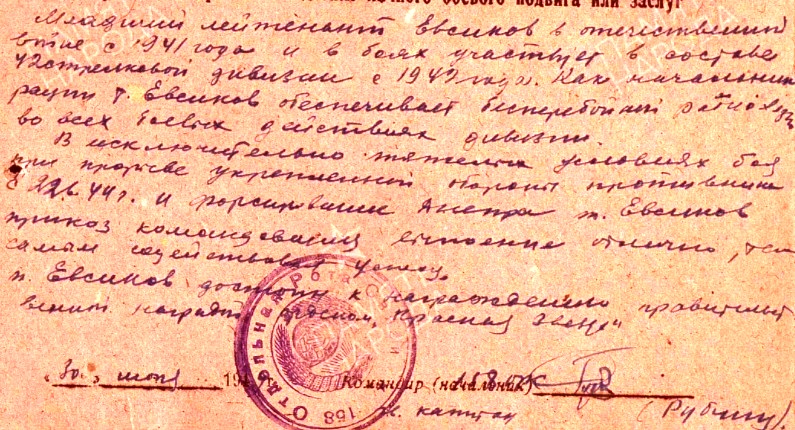 боевого подвига или заслуг
Младший лейтенант Евсиков в отечественной
войне с 1941 года и в боях участвует в составе
42 стрелковой дивизии с 1942 года. Как начальник
рации т. Евсиков обеспечивает бесперебойной
во всех боевых действиях дивизии.
В исключительно тяжелых условиях боя
при прорыве укрепленной обороны противника
22.6.44 г. и форсирование Днепра т. Евсиков
приказ командования отлично, тем
самым содействовал успеху.
т. Евсиков достоин к награждению правительст
венной награды орденом "Красная Звезда"
"30" июня 194 г. Командир (начальник)
капитан (Рубин)
158 Отдельная Рота
ПАМЯТЬ НАРОДА